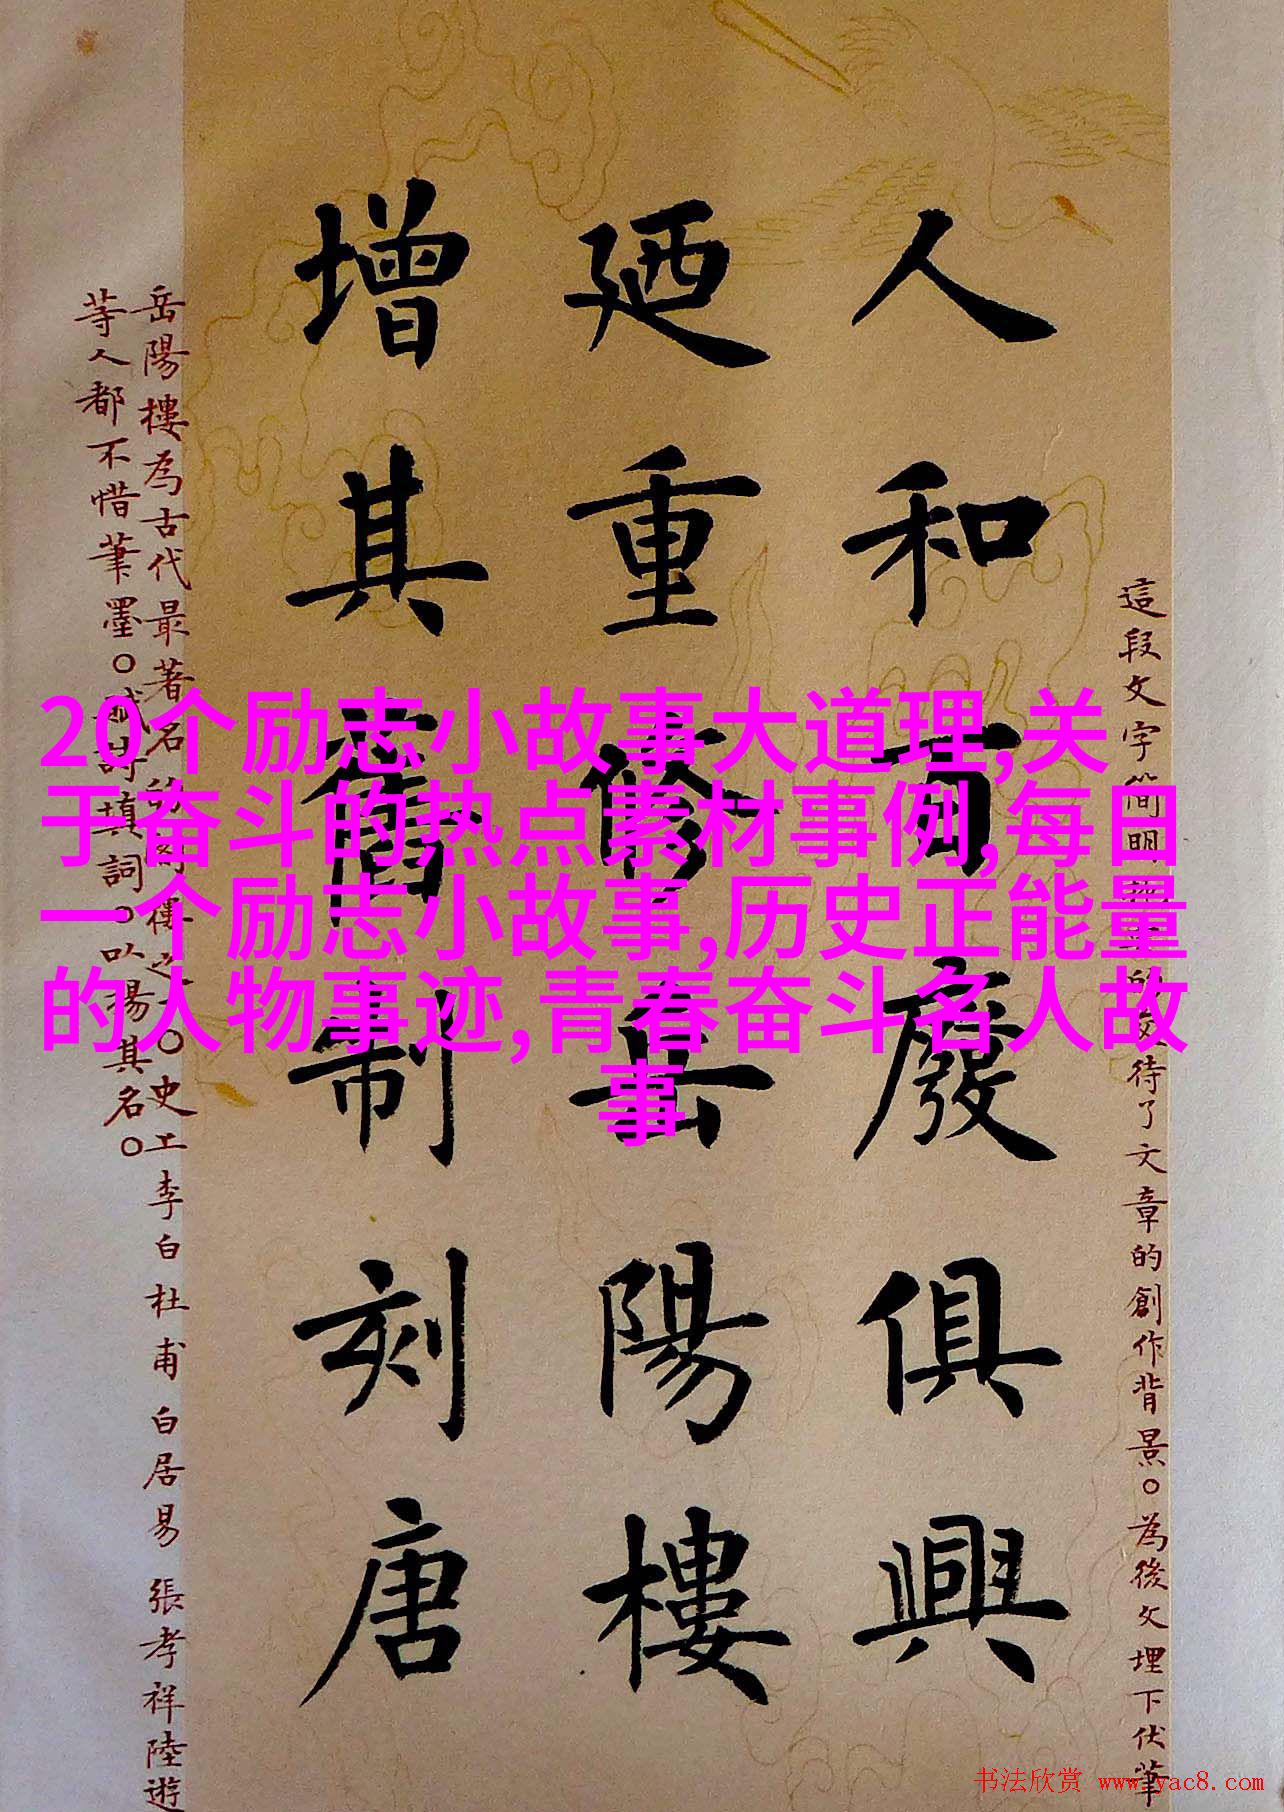 這段文字簡明
待了文章的創作背景。為後文埋下伏筆
人和
廢俱興
廼重修岳陽樓
增其舊制刻唐
岳陽樓為古代最著名
樓之一。史上李白杜甫白居易張孝祥陸游
等人都不惜筆墨。
填詞。以揚其名。
20个励志小故事大道理,关
于奋斗的热点素材事例,每日
一个励志小故事,历史正能量
的人物事迹,青春奋斗名人故
事
书法欣赏 www.yac8.com